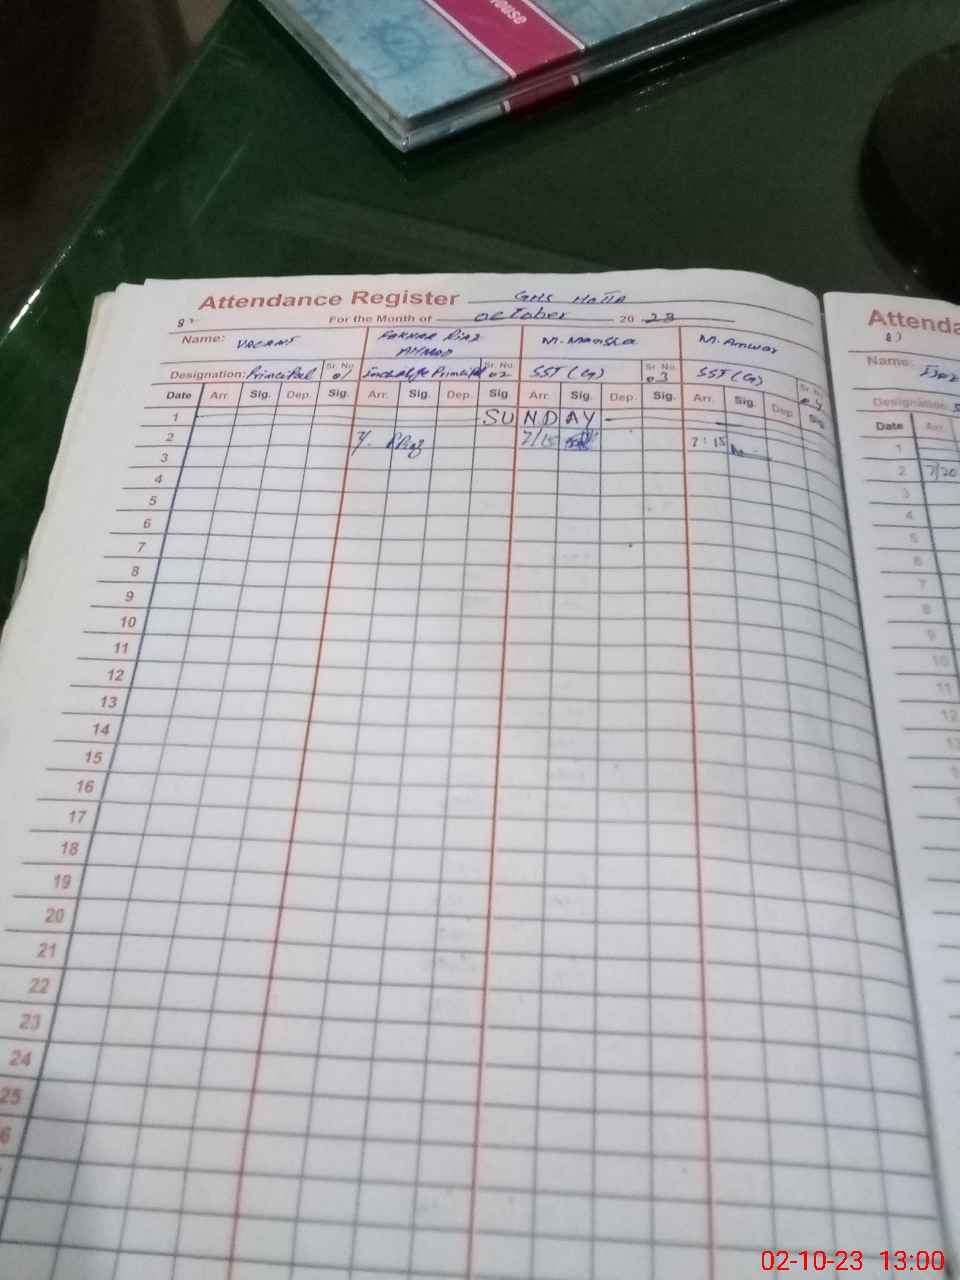 House
Attendance Register GHS
For the Month of October 20 23
Name: VACANT FAKHAR RIAZ AHMAD M. Mansha M. Anwar
Designation: Principal Sr. No. 01 Incharge Principal Sr. No. 02 SST (G) Sr. No. 03 SST (G) Sr. No. 04
Date Arr. Sig. Dep. Sig. Arr. Sig. Dep. Sig. Arr. Sig. Dep. Sig. Arr. Sig. Dep. Sig.
1 SUNDAY
2 7/15 7:15
3
4
5
6
7
8
9
10
11
12
13
14
15
16
17
18
19
20
21
22
23
24
25
6
Attenda
Name:
Designation:
Date Arr.
1
2 7/20
3
4
5
6
7
8
9
10
11
12
02-10-23 13:00